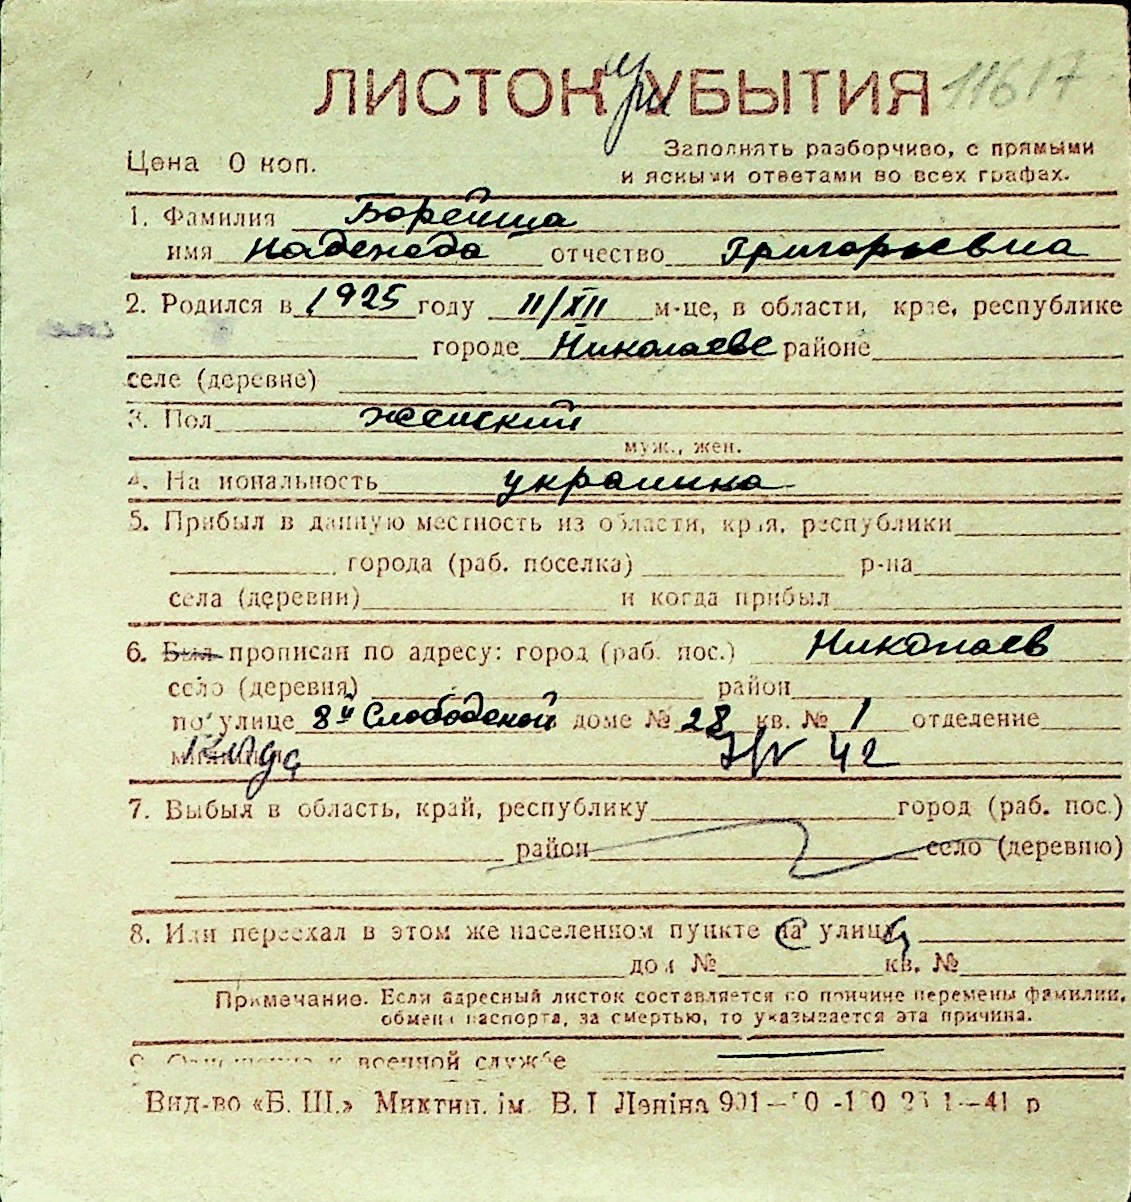 ЛИСТОК при УБЫТИЯ 11617
Цена 0 коп.
Заполнять разборчиво, с прямыми
и ясными ответами во всех графах.
1. Фамилия Борейша
имя Надежда отчество Григорьевна
2. Родился в 1925 году 11/XII м-це, в области, крае, республике
городе Николаеве районе
селе (деревне)
3. Пол женский
муж., жен.
4. Национальность украинка
5. Прибыл в данную местность из области, края, республики
города (раб. поселка) р-на
села (деревни) и когда прибыл
6. Был прописан по адресу: город (раб. пос.) Николаев
село (деревня) район
по улице 8й Слободской доме № 28 кв. № 1 отделение
42
7. Выбыл в область, край, республику город (раб. пос.)
район село (деревню)
8. Или переехал в этом же населенном пункте на улицу
дом № кв. №
Примечание. Если адресный листок составляется по причине перемены фамилии,
обмена паспорта, за смертью, то указывается эта причина.
9. Отношение к военной службе
Вид-во «Б. Ш.» Миктип. ім. В. І Леніна 901 41 р